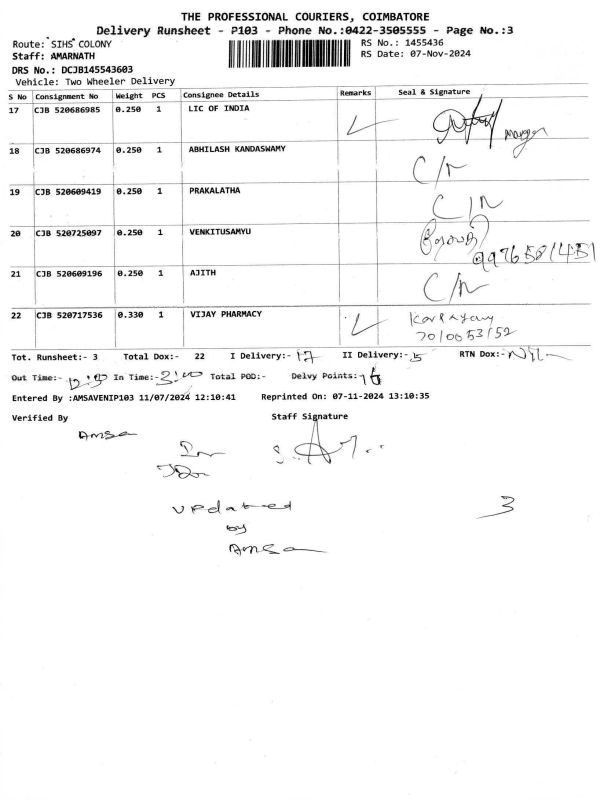 THE PROFESSIONAL COURIERS, COIMBATORE
Delivery Runsheet - P103 - Phone No.:0422-3505555 - Page No.:3
Route: "SIHS" COLONY
RS No.: 1455436
Staff: AMARNATH
RS Date: 07-Nov-2024
DRS No.: DCJB145543603
Vehicle: Two Wheeler Delivery
S No Consignment No Weight PCS Consignee Details Remarks Seal & Signature
17 CJB 520686985 0.250 1 LIC OF INDIA
18 CJB 520686974 0.250 1 ABHILASH KANDASWAMY C/N
19 CJB 520609419 0.250 1 PRAKALATHA C/N
20 CJB 520725097 0.250 1 VENKITUSAMYU
21 CJB 520609196 0.250 1 AJITH C/N
22 CJB 520717536 0.330 1 VIJAY PHARMACY
7010053152
Tot. Runsheet:- 3 Total Dox:- 22 I Delivery:- 17 II Delivery:- 5 RTN Dox:- NIL
Out Time:- 12:30 In Time:- 3:00 Total POD:- Delvy Points:- 16
Entered By :AMSAVENIP103 11/07/2024 12:10:41 Reprinted On: 07-11-2024 13:10:35
Verified By Staff Signature
Amsa
Updated 3
by
Amsa